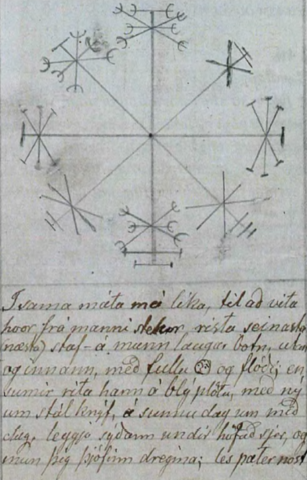 I sama máta má líka, til að vita
hvor frá manni stelur, rista seinasta
(næsta) staf á munn laugar botn, utan
og innann, með fullu og flóði; en
sumir rita hann á blý plötu, með ný
um stál knyf, á sunnu dag un með
dag, leggja sýðann undir höfuð sjer, og
mun þig þjófinn dreyma; les pater nost